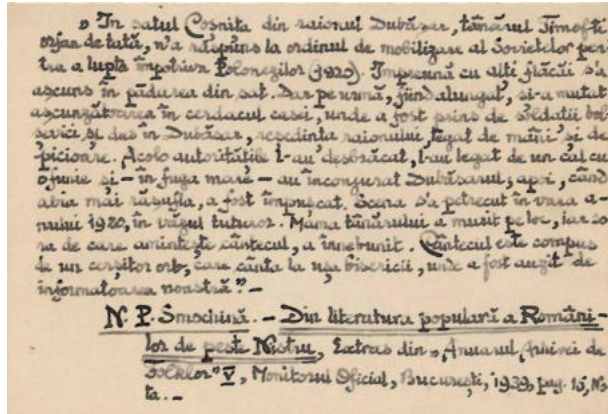 „In satul Coșnița din raionul Dubăsar, tânărul Timofte
orfan de tată, n'a răspuns la ordinul de mobilizare al Sovietelor pen-
tru a lupta împotriva Polonezilor (1920). Impreună cu alți flăcăi s'a
ascuns în pădurea din sat. Dar pe urmă, fiind alungat, și-a mutat
ascunzătoarea în cerdacul casei, unde a fost prins de soldații bol-
șevici și dus în Dubăsar, reședința raionului, legat de mâini și de
picioare. Acolo autoritățile l-au desbrăcat, l-au legat de un cal cu
o funie și - în fuga mare - au înconjurat Dubăsarul; apoi, când
abia mai răsufla, a fost împușcat. Scena s'a petrecut în vara a-
nului 1920, în văzul tuturor. Mama tânărului a murit pe loc, iar so-
ra de care amintește cântecul, a înnebunit. Cântecul este compus
de un cerșitor orb, care cânta la ușa bisericii, unde a fost auzit de
informatoarea noastră". -
N. P. Smochină. - Din literatura populară a Români-
lor de peste Nistru, Extras din „Anuarul Arhivei de
Folklor" V, Monitorul Oficial, București, 1939, pag. 15, No-
ta. -